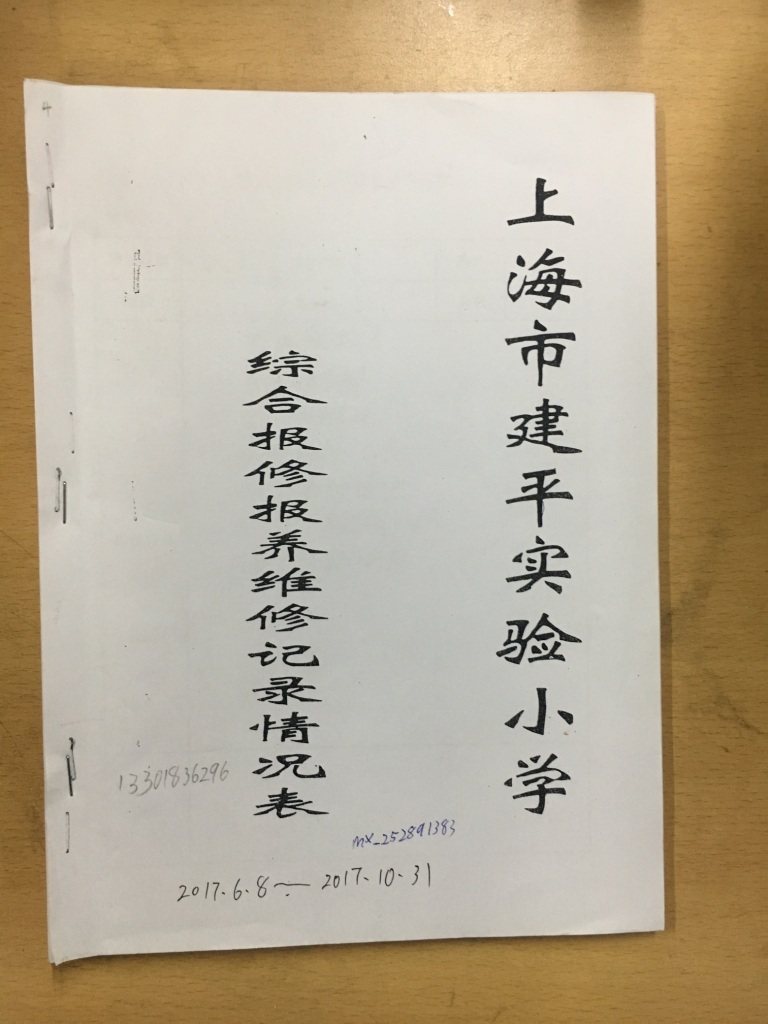 上海市建平实验小学
综合报修报养维修记录情况表
13301836296
mx_252891383
2017.6.8—2017.10.31